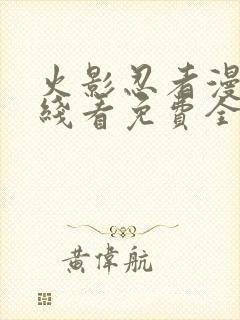 火影忍者漫
綫看免費全
黃偉航